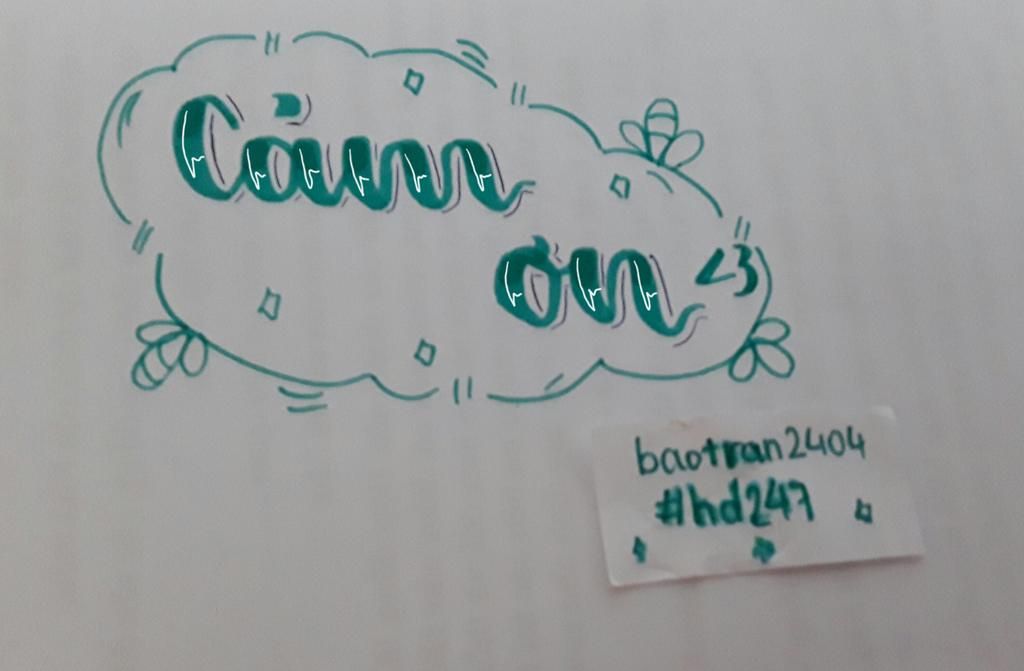 Cảm
ơn <3
baotran2404
#hd247